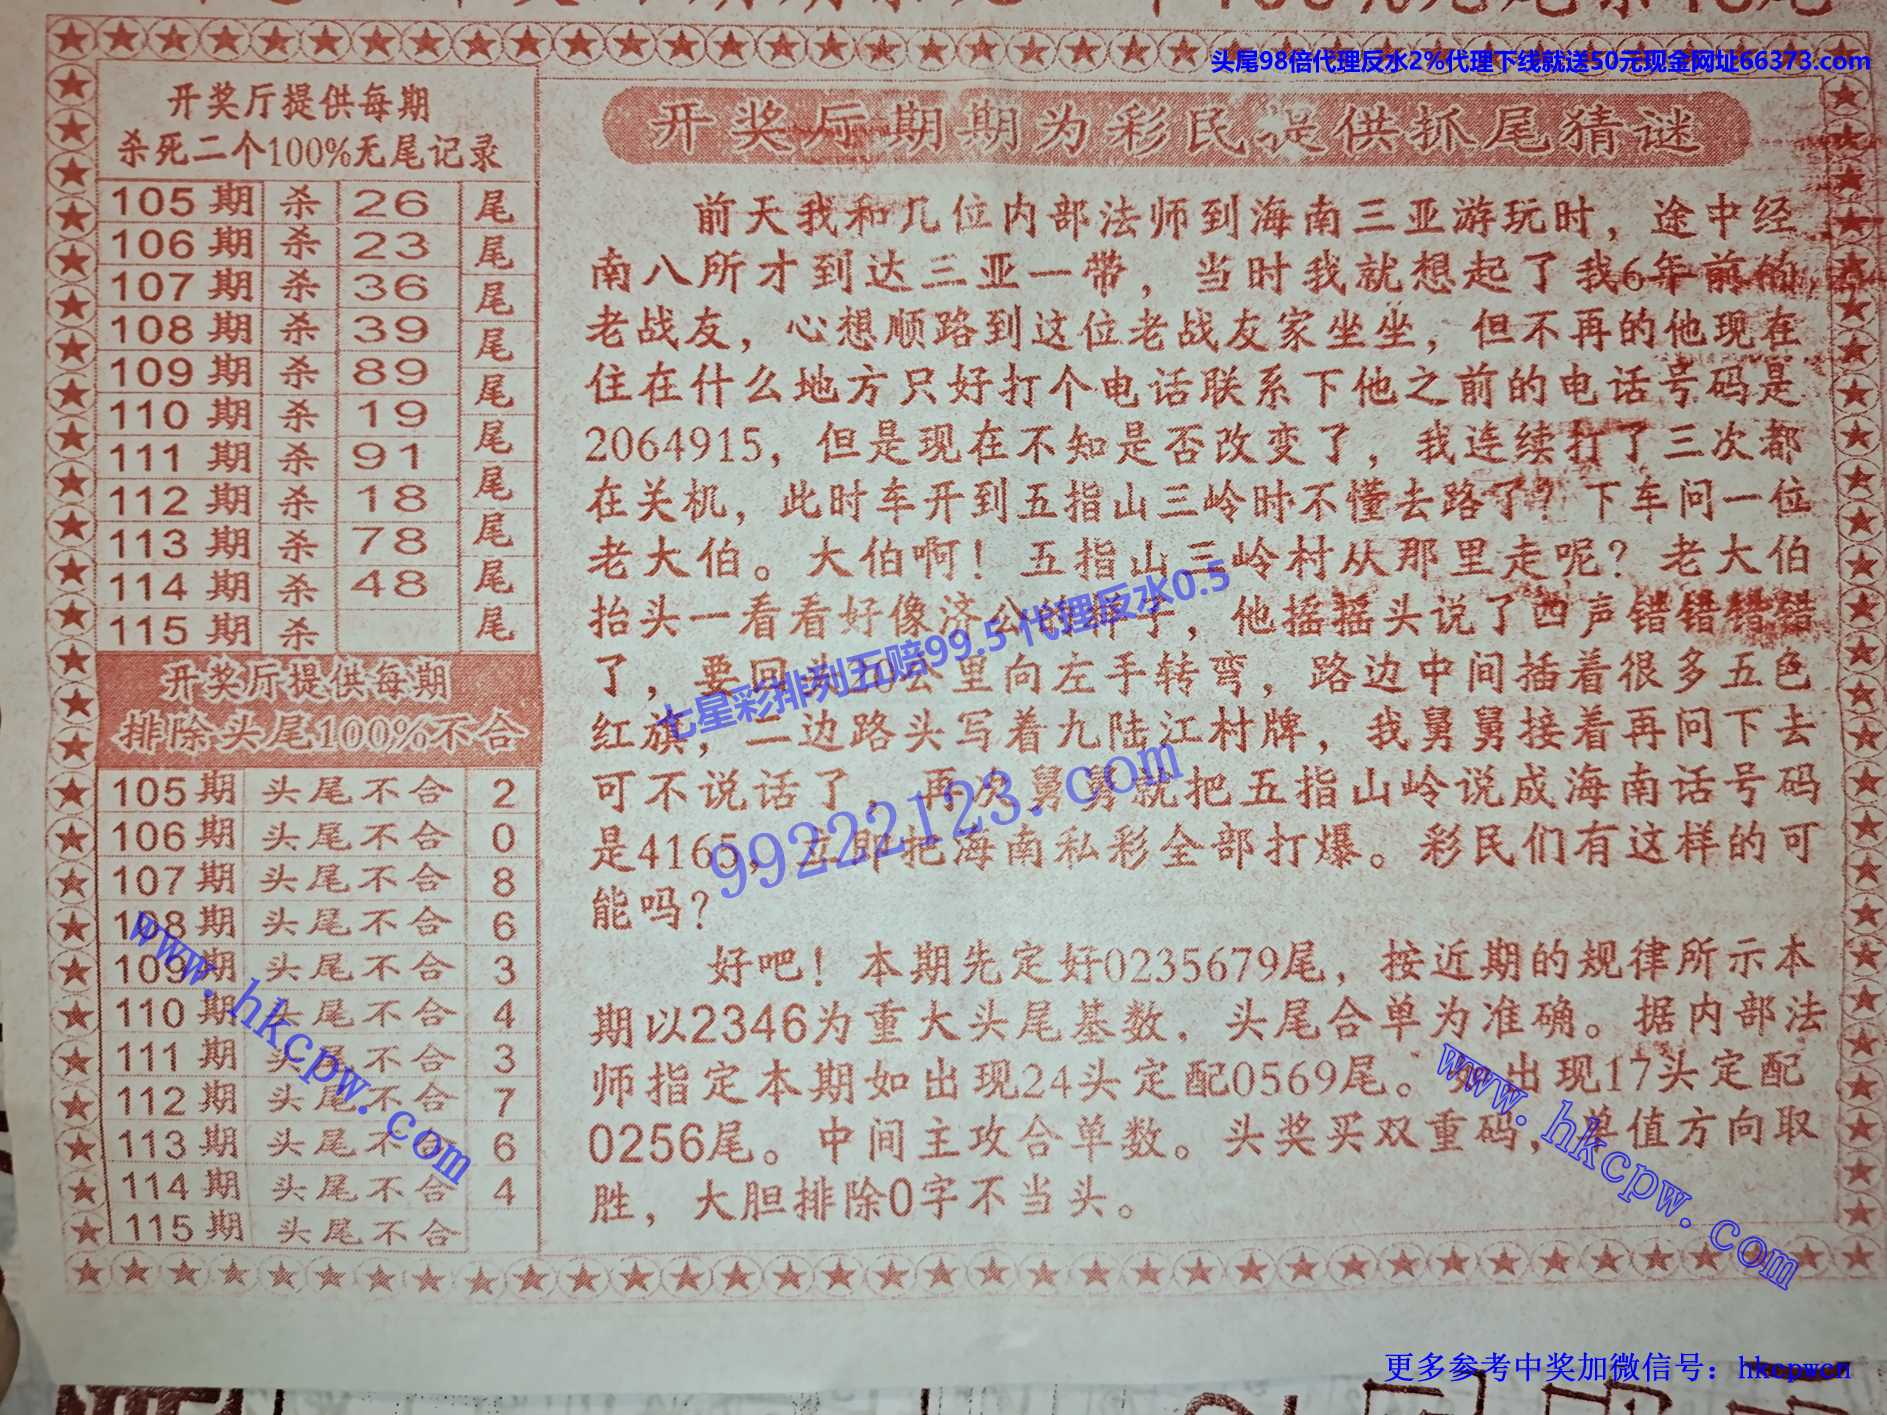 头尾98倍代理反水2%代理下线就送50元现金网址66373.com
开奖厅提供每期
杀死二个100%无尾记录
105期 杀 26 尾
106期 杀 23 尾
107期 杀 36 尾
108期 杀 39 尾
109期 杀 89 尾
110期 杀 19 尾
111期 杀 91 尾
112期 杀 18 尾
113期 杀 78 尾
114期 杀 48 尾
115期 杀 尾
开奖厅提供每期
排除头尾100%不合
105期 头尾不合 2
106期 头尾不合 0
107期 头尾不合 8
108期 头尾不合 6
109期 头尾不合 3
110期 头尾不合 4
111期 头尾不合 3
112期 头尾不合 7
113期 头尾不合 6
114期 头尾不合 4
115期 头尾不合
开奖厅期期为彩民提供抓尾猜谜
前天我和几位内部法师到海南三亚游玩时，途中经
南八所才到达三亚一带，当时我就想起了我6年前的
老战友，心想顺路到这位老战友家坐坐，但不再的他现在
住在什么地方只好打个电话联系下他之前的电话号码是
2064915，但是现在不知是否改变了，我连续打了三次都
在关机，此时车开到五指山三岭时不懂去路了？下车问一位
老大伯。大伯啊！五指山三岭村从那里走呢？老大伯
抬头一看看好像济公的样子，他摇摇头说了四声错错错错
了，要回头20公里向左手转弯，路边中间插着很多五色
红旗，二边路头写着九陆江村牌，我舅舅接着再问下去
可不说话了，再次舅舅就把五指山岭说成海南话号码
是4165，立即把海南私彩全部打爆。彩民们有这样的可
能吗？
好吧！本期先定好0235679尾，按近期的规律所示本
期以2346为重大头尾基数，头尾合单为准确。据内部法
师指定本期如出现24头定配0569尾。如出现17头定配
0256尾。中间主攻合单数。头奖买双重码，单值方向取
胜，大胆排除0字不当头。
七星彩排列五赔99.5代理反水0.5
99222123.com
www.hkcpw.com
www.hkcpw.com
更多参考中奖加微信号：hkcpwcn